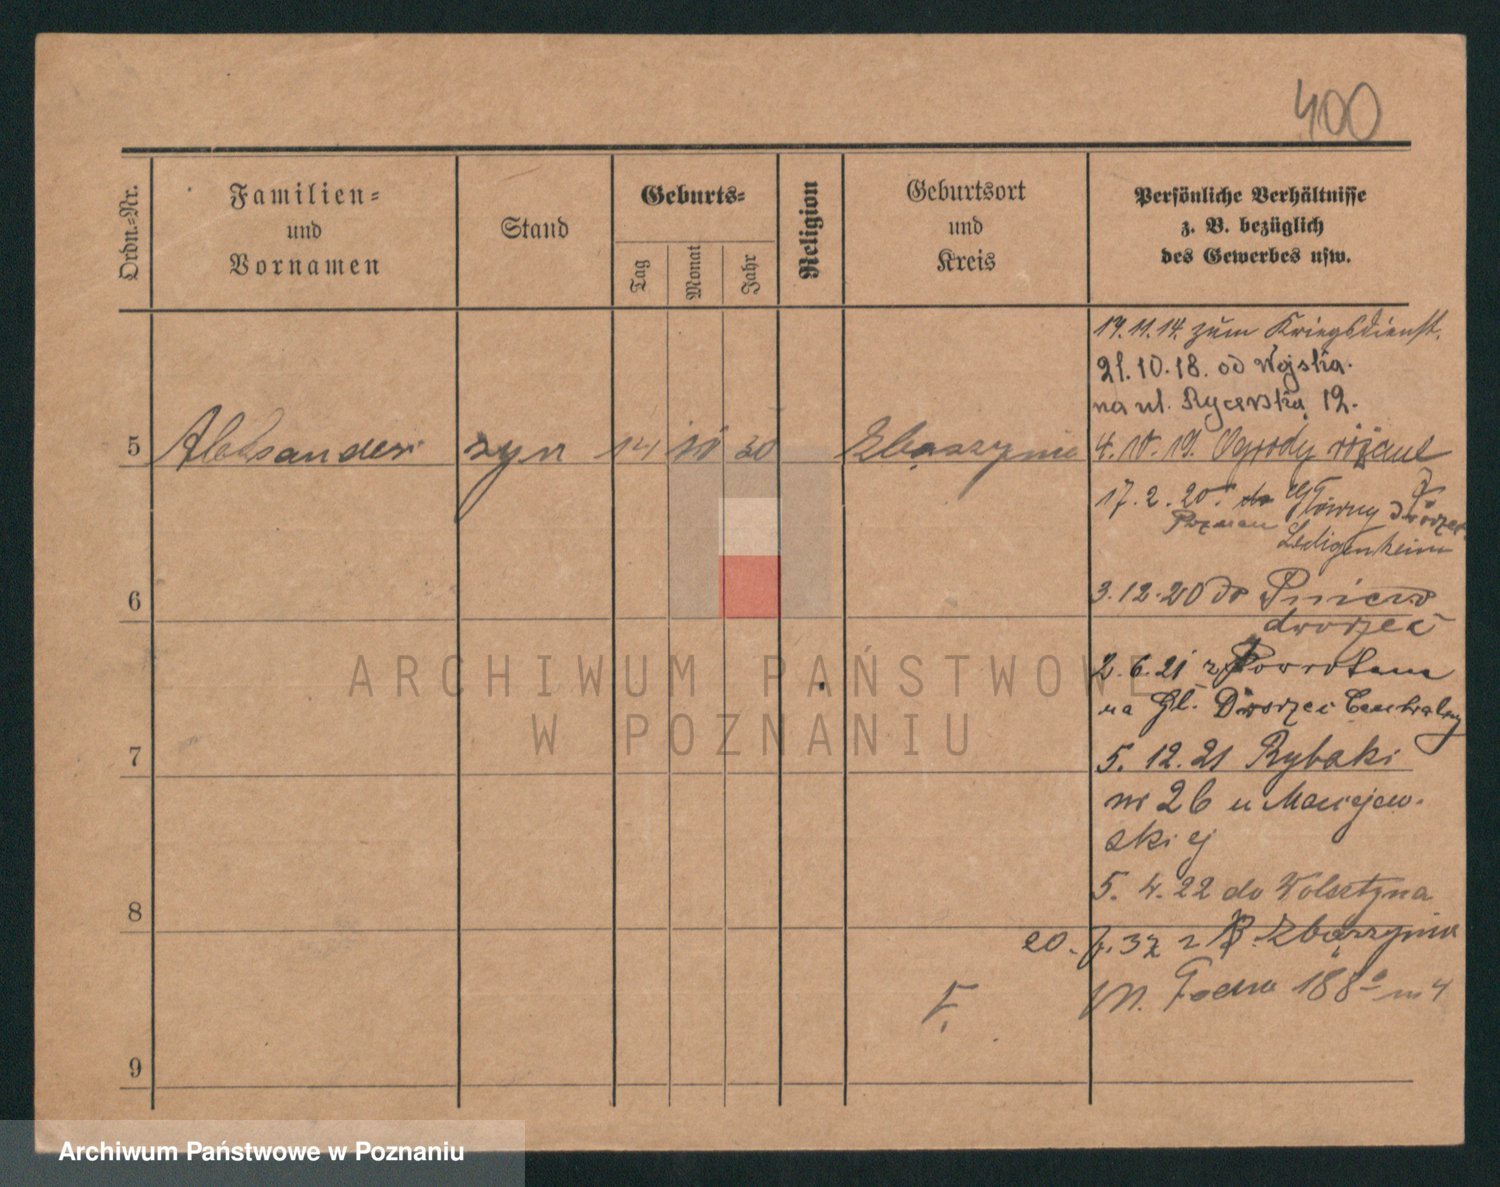 400
Ordn.-Nr.
Familien-
und
Vornamen
Stand
Geburts-
Tag
Monat
Jahr
Religion
Geburtsort
und
Kreis
Persönliche Verhältnisse
z. B. bezüglich
des Gewerbes usw.
19.11.14. zum Kriegsdienst.
21.10.18. od Wojska.
na ul. Rycerską 12.
5 Aleksander syn 14 30 Zbąszynia
4.10.19. Ogrody różane
17.2.20. do Główny dworzec
Poznań
Ledigenheim
6
3.12.20 do Pniewo
dworzec
2.6.21 z Powrotem
na Gł. Dworzec Centralny
7
5.12.21 Rybaki
nr 26 u Maciejew-
skiej
5.4.22 do Wolsztyna
8
z Zbąszynia
M. Focha 188 m 4
9
ARCHIWUM PAŃSTWOWE
W POZNANIU
Archiwum Państwowe w Poznaniu